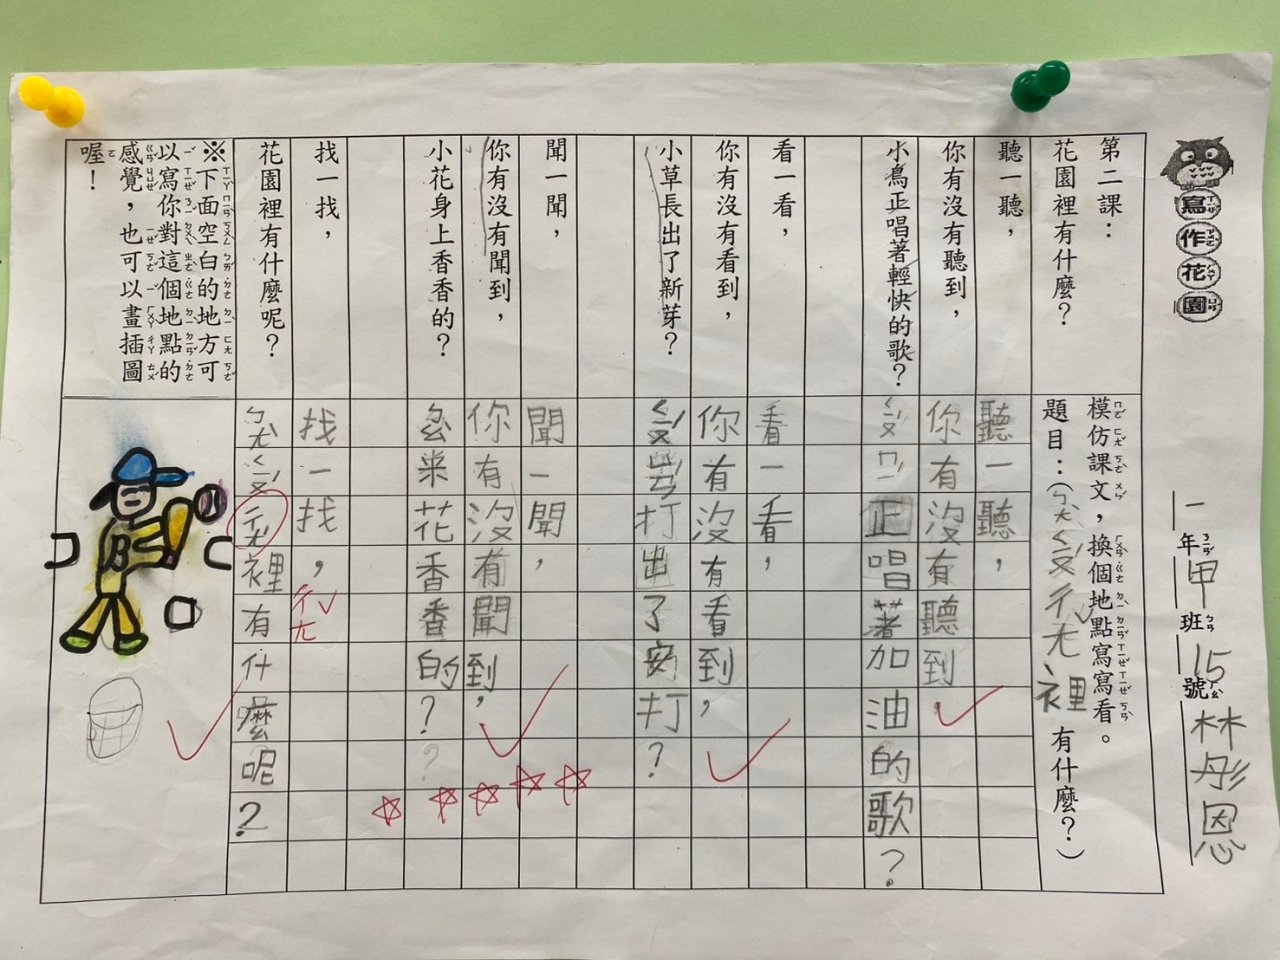 寫作花園
一年甲班15號林彤恩
第二課：
花園裡有什麼？
聽一聽，
你有沒有聽到，
小鳥正唱著輕快的歌？
看一看，
你有沒有看到，
小草長出了新芽？
聞一聞，
你有沒有聞到，
小花身上香香的？
找一找，
花園裡有什麼呢？
※下面空白的地方可
以寫你對這個地點的
感覺，也可以畫插圖
喔！
模仿課文，換個地點寫寫看。
題目：（ㄅㄤˋㄑㄧㄡˊㄔㄤˇ裡有什麼？）
聽一聽，
你有沒有聽到，
ㄑㄧㄡˊㄇㄧˊ正唱著加油的歌？
看一看，
你有沒有看到，
打出了安打？
聞一聞，
你有沒有聞到，
爆米花香香的？
找一找，
ㄔㄤˇ
ㄅㄤˋㄑㄧㄡˊㄔㄤˇ裡有什麼呢？
B